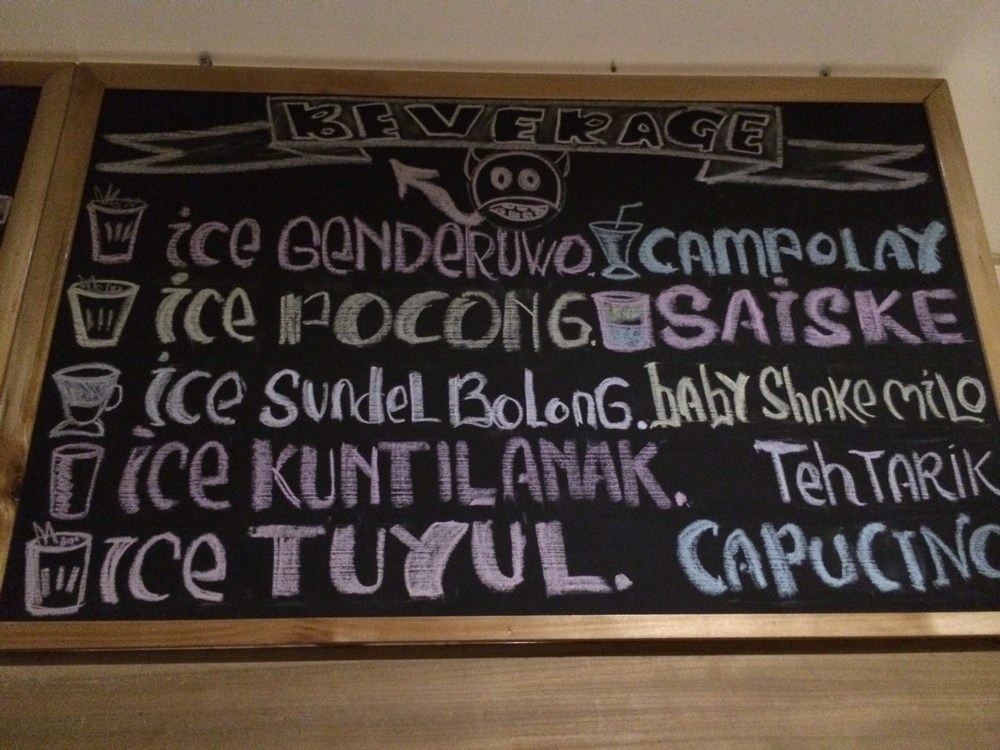 BEVERAGE
ice GENDERUWO. CAMPOLAY
ice POCONG. SAiSKE
ice SundeL BoLonG. bAbY ShAkemiLO
ice KUNTILANAK. TehTARiK
ice TUYUL. CAPUCINO